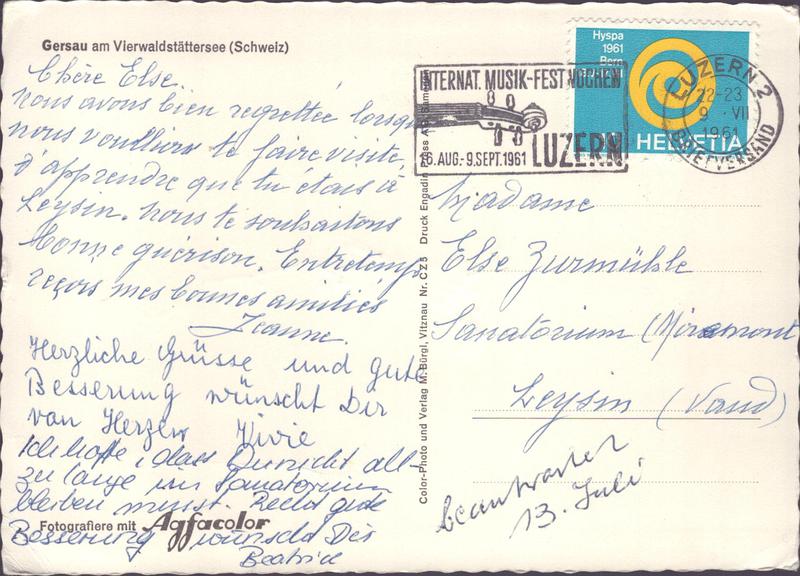 Gersau am Vierwaldstättersee (Schweiz)
Chère Else.
nous avons bien regrettée lorsque
nous voullions te faire visite,
d'apprendre que tu étais à
Leysin. Nous te souhaitons
bonne guérison. Entretemps
reçois mes bonnes amitiés
Jeanne.
Herzliche Grüsse und gute
Besserung wünscht Dir
von Herzen Vivie
Ich hoffe, dass Du nicht all-
zu lange im Sanatorium
bleiben musst. Recht gute
Besserung wünscht Dir
Beatrice
Fotografiere mit Agfacolor
Color-Photo und Verlag M. Bürgl, Vitznau Nr. CZ5 Druck Engadin Press
INTERNAT. MUSIK-FESTWOCHEN
16. AUG.-9. SEPT. 1961 LUZERN
Hyspa
1961
Bern
HELVETIA
LUZERN 2
22-23
9. VII
1961
BRIEFVERSAND
Madame
Else Zurmühle
Sanatorium (Miremont
Leysin (Vaud)
beantwortet
13. Juli